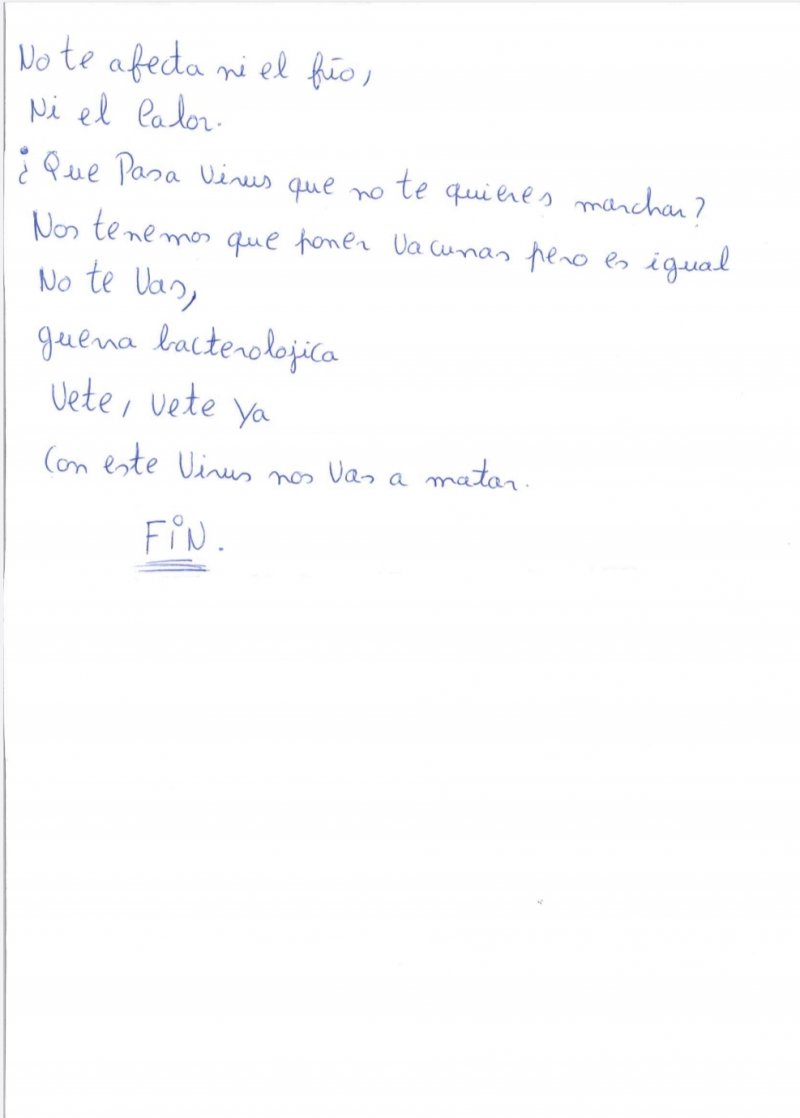 No te afecta ni el frío,
Ni el calor.
¿Que Pasa Virus que no te quieres marchar?
Nos tenemos que poner Vacunas pero es igual
No te Vas,
guerra bacterolojica
Vete, vete ya
Con este Virus nos Vas a matar.
FiN.